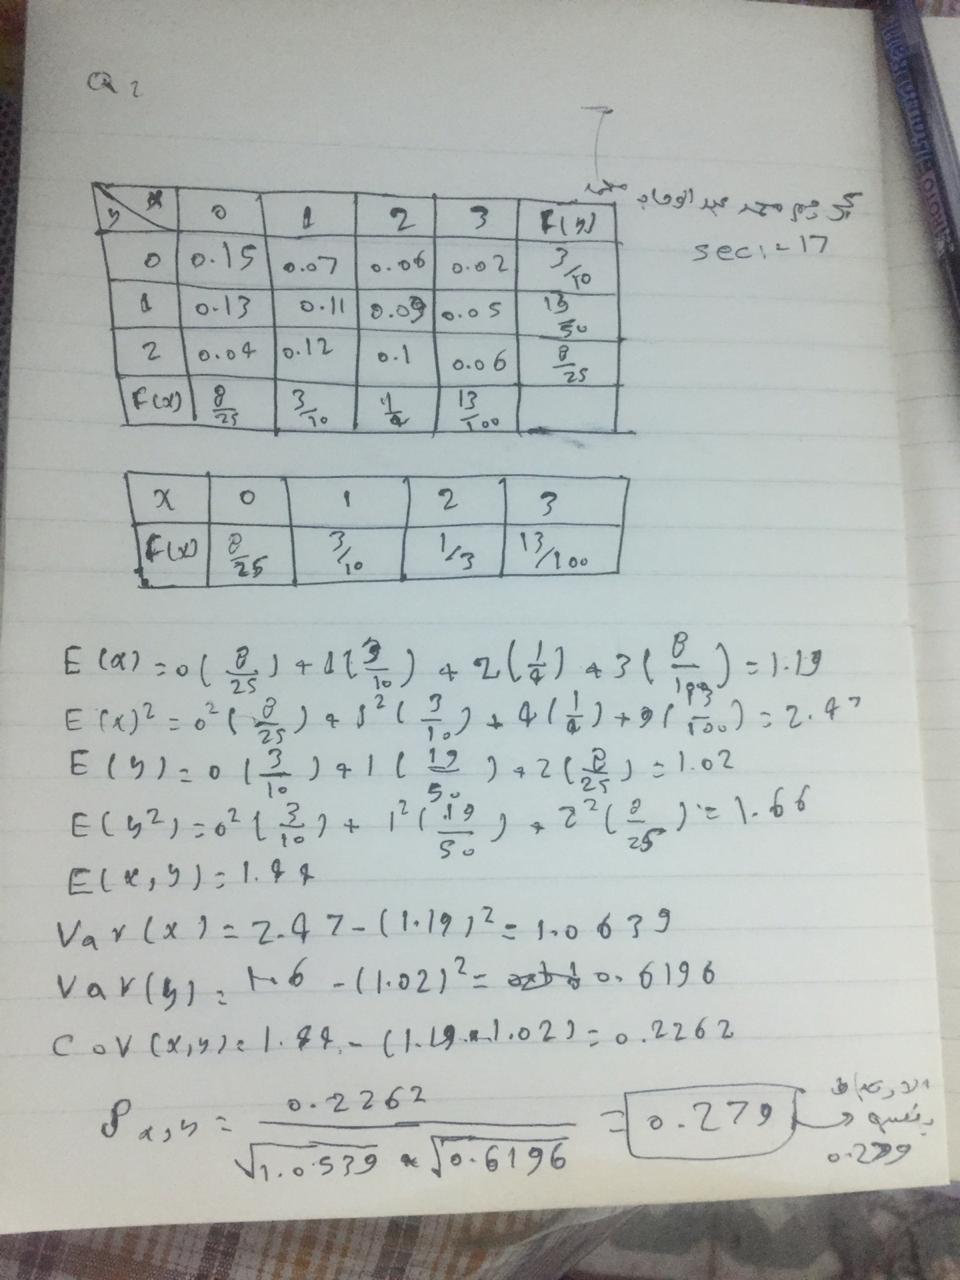 Q 2
sec 1 - 17
y x 0 1 2 3 F(y)
0 0.15 0.07 0.06 0.02 3/10
1 0.13 0.11 0.09 0.05 19/50
2 0.04 0.12 0.1 0.06 8/25
F(x) 8/25 3/10 1/4 13/100
x 0 1 2 3
F(x) 8/25 3/10 1/3 13/100
E(x) = 0(8/25) + 1(3/10) + 2(1/4) + 3(8/100) = 1.19
E(x)² = 0²(8/25) + 1²(3/10) + 4(1/4) + 9(13/100) = 2.47
E(y) = 0(3/10) + 1(19/50) + 2(8/25) = 1.02
E(y²) = 0²(3/10) + 1²(19/50) + 2²(8/25) = 1.66
E(x,y) = 1.44
Var(x) = 2.47 - (1.19)² = 1.0639
Var(y) = 1.6 - (1.02)² = 0.6196
Cov(x,y) = 1.44 - (1.19 * 1.02) = 0.2262
ρx,y = 0.2262 / √1.0539 * √0.6196 = 0.279
بنفسه
0.279